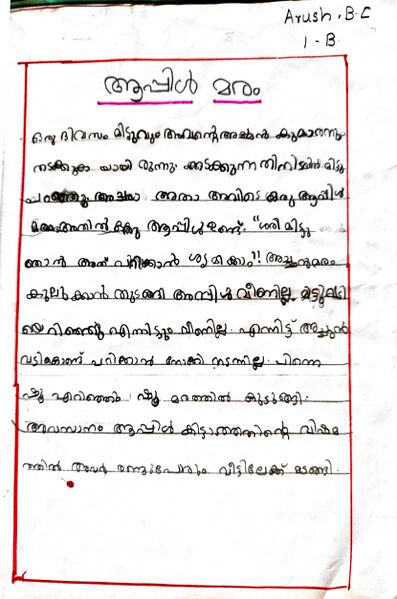 Arush . B. C
1 - B
ആപ്പിൾ മരം
ഒരു ദിവസം മിട്ടുവും അവന്റെ അച്ഛൻ കുമാരനും
നടക്കുക യായി രുന്നു. നടക്കുന്ന തിനിടയിൽ മിട്ടു
പറഞ്ഞു അച്ഛാ അതാ അവിടെ ഒരു ആപ്പിൾ
മരം അതിൽ ഒരു ആപ്പിൾ ഉണ്ട്. "ശരി മിട്ടു
ഞാൻ അത് പറിക്കാൻ ശ്രമിക്കാം"!! അച്ഛൻ മരം
കുലുക്കാൻ തുടങ്ങി ആപ്പിൾ വീണില്ല.
യെറിഞ്ഞു എന്നിട്ടും വീണില്ല. എന്നിട്ട് അച്ഛൻ
വടികൊണ്ട് പറിക്കാൻ നോക്കി നടന്നില്ല. പിന്നെ
ഷൂ എറിഞ്ഞു. ഷൂ മരത്തിൽ കുടുങ്ങി.
അവസാനം ആപ്പിൾ കിട്ടാത്തതിന്റെ വിഷമ
ത്തിൽ അവർ രണ്ടുപേരും വീട്ടിലേക്ക് മടങ്ങി.